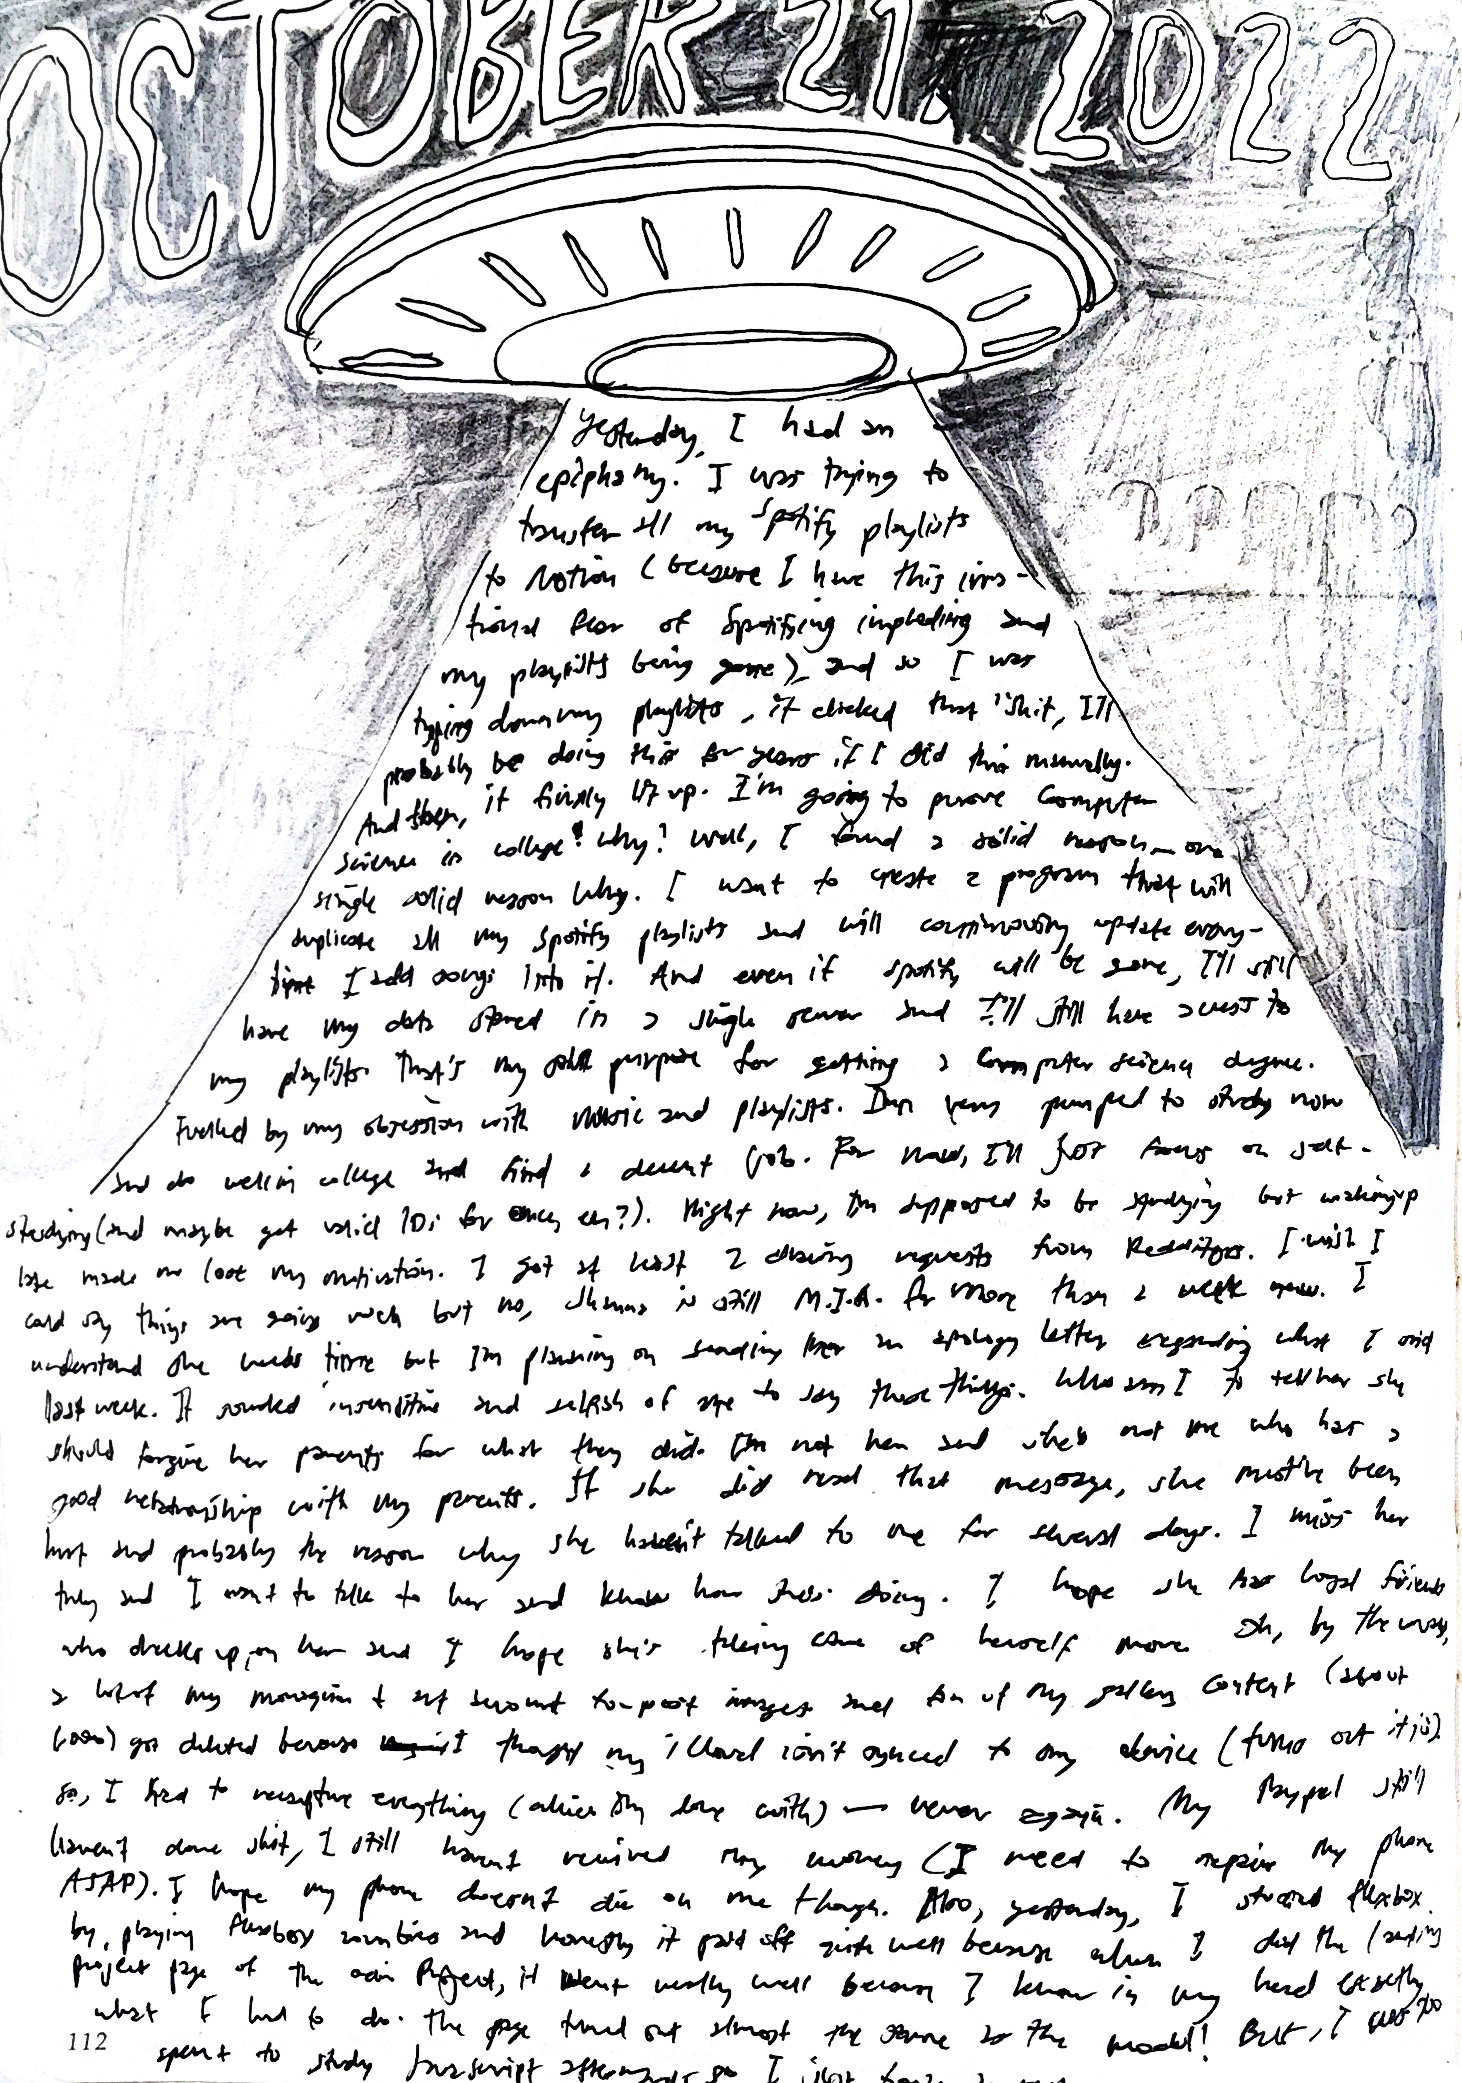 OCTOBER 21, 2022
Yesterday, I had an
epiphany. I was trying to
transfer all my Spotify playlists
to Notion (because I have this irra-
tional fear of Spotifying imploding and
my playlists being gone) and so I was
typing down my playlists, it clicked that "shit, I'll
probably be doing this for years if I did this manually.
And then, it finally lit up. I'm going to pursue Computer
Science in college! Why? Well, I found a solid reason— one
single solid reason why. I want to create a program that will
duplicate all my Spotify playlists and will continuously update every-
time I add songs into it. And even if spotify will be gone, I'll still
have my data stored in a single server and I'll still have access to
my playlists. That's my purpose for getting a Computer science degree.
Fuelled by my obsession with music and playlists. I'm very pumped to study now
and do well in college and find a decent job. For now, I'll just focus on self-
studying (and maybe get valid IDs for once). Right now, I'm supposed to be studying but waking up
late made me lose my motivation. I got at least 2 drawing requests from Redditors. I wish I
could say things are going well but no, is still M.I.A. for more than a week now. I
understand she needs time but I'm planning on sending her an apology letter regarding what I said
last week. It sounded insensitive and selfish of me to say those things. Who am I to tell her she
should forgive her parents for what they did. I'm not her and she's not me who has a
good relationship with my parents. If she did read that message, she must've been
hurt and probably the reason why she haven't talked to me for several days. I miss her
truly and I want to talk to her and know how she's doing. I hope she has loyal friends
who checks upon her and I hope she's taking care of herself more. Oh, by the way,
a lot of my art account to-post images and ton of my gallery content (about
) got deleted because I thought my iCloud isn't synced to my device (turns out it is).
So, I had to everything (which I'm done with) — never again. My Paypal still
haven't done shit, I still haven't received my money (I need to repair my phone
ASAP). I hope my phone doesn't die on me though. Also, yesterday, I studied flexbox
by playing flexbox zombies and honestly it paid off quite well because when I did the landing
project page of the odin Project, it went really well because I know in my head exactly
what I had to do. The page turned out almost the same as the model! But, I was too
spent to study Javascript afterwards so I just
112